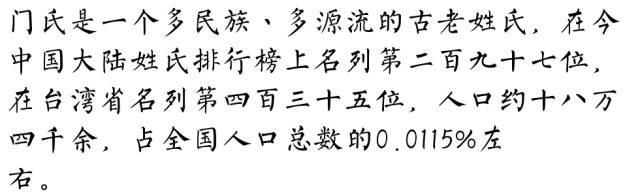 门氏是一个多民族、多源流的古老姓氏,在今
中国大陆姓氏排行榜上名列第二百九十七位,
在台湾省名列第四百三十五位,人口约十八万
四千余,占全国人口总数的0.0115%左
右。